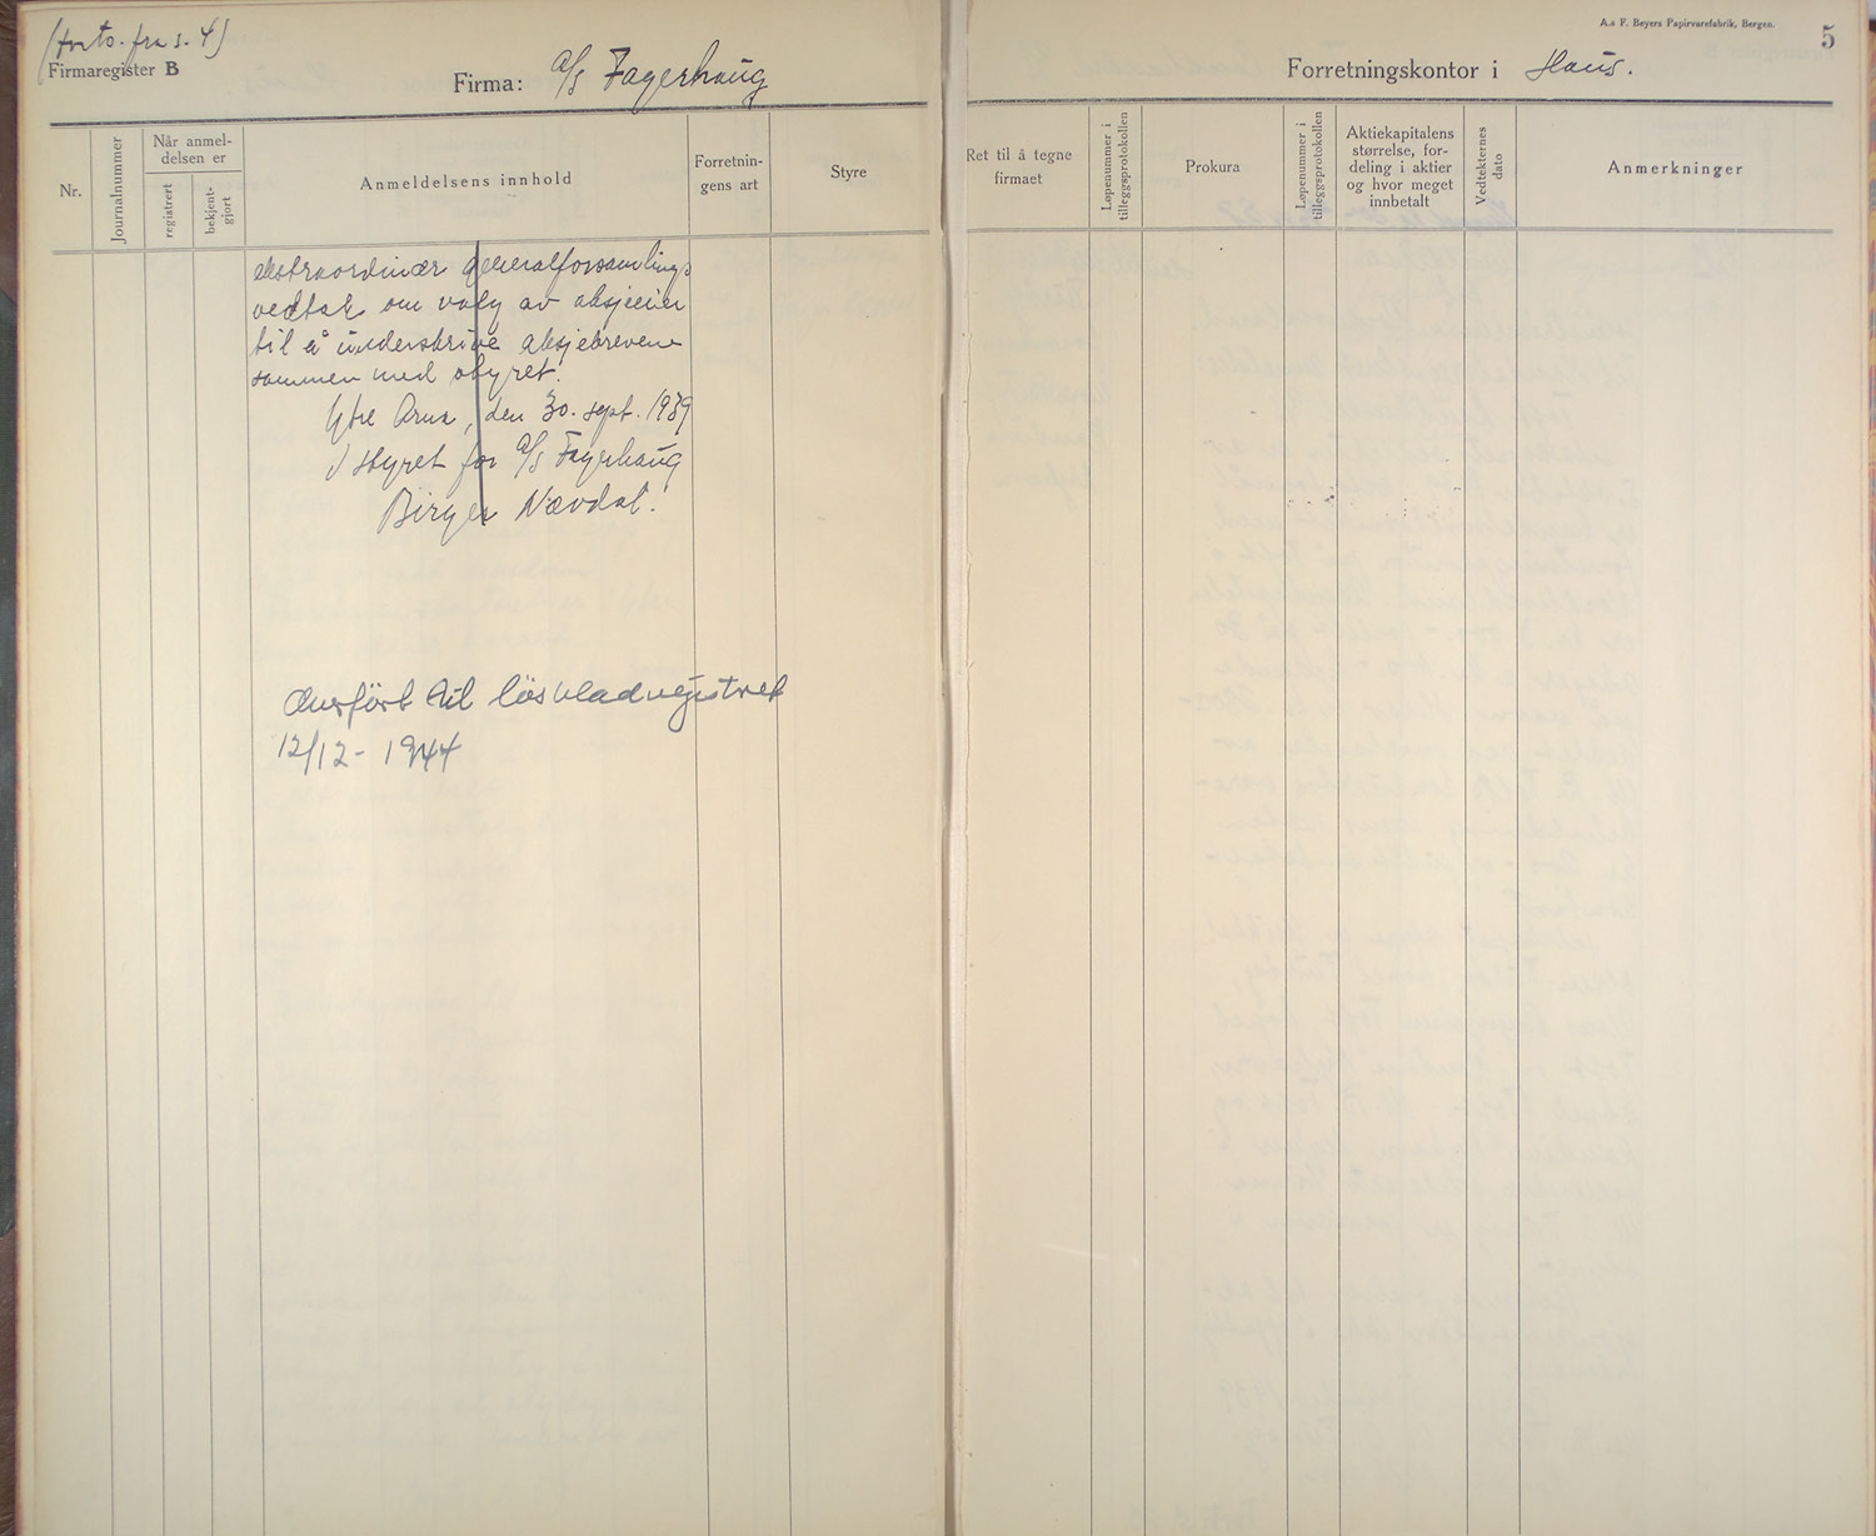 (forts. fra s. 4)
Firmaregister B
Firma: A/S Fagerhaug
A.s F. Beyers Papirvarefabrik, Bergen.
5
Forretningskontor i Haus.
Nr.
Journalnummer
Når anmel-
delsen er
registrert
bekjent-
gjort
Anmeldelsens innhold
Forretnin-
gens art
Styre
Ret til å tegne
firmaet
Løpenummer i
tilleggsprotokollen
Prokura
Løpenummer i
tilleggsprotokollen
Aktiekapitalens
størrelse, for-
deling i aktier
og hvor meget
innbetalt
Vedtekternes
dato
Anmerkninger
ekstraordinær generalforsamlings
vedtak om valg av aksjeeier
til å underskrive aksjebrevene
sammen med styret.
Ytre Arna, den 30. sept. 1939
I styret for A/S Fagerhaug
Birger Nævdal.
Overført til løsbladregistret
12/12 - 1944